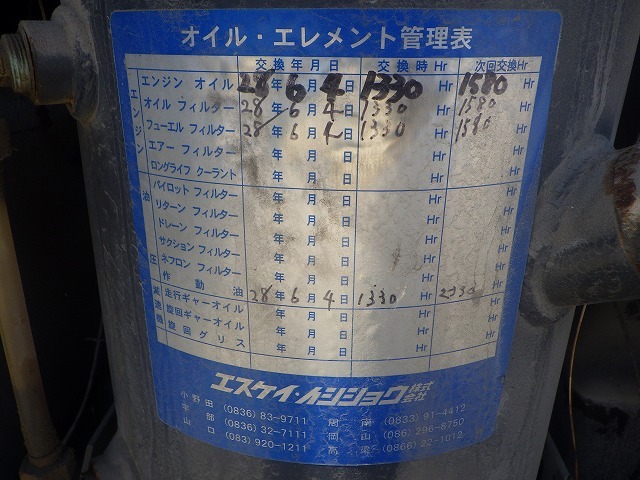 オイル・エレメント管理表
交換年月日 交換時Hr 次回交換Hr
エンジン
エンジン オイル 28年6月4日 1330Hr 1580Hr
オイル フィルター 28年6月4日 1330Hr 1580Hr
フューエル フィルター 28年6月4日 1330Hr 1580Hr
エアー フィルター 年 月 日 Hr Hr
ロングライフ クーラント 年 月 日 Hr Hr
油圧
パイロット フィルター 年 月 日 Hr Hr
リターン フィルター 年 月 日 Hr Hr
ドレーン フィルター 年 月 日 Hr Hr
サクション フィルター 年 月 日 Hr Hr
ネフロン フィルター 年 月 日 Hr Hr
作動油 年 月 日 Hr Hr
減速機
走行ギャーオイル 28年6月4日 1330Hr 2330Hr
旋回ギャーオイル 年 月 日 Hr Hr
旋回グリス 年 月 日 Hr Hr
エスケイ・イシショウ株式会社
小野田 (0836) 83-9711 周南 (0833) 91-4412
宇部 (0836) 32-7111 岡山 (086) 296-8750
山口 (083) 920-1211 高梁 (0866) 22-1012